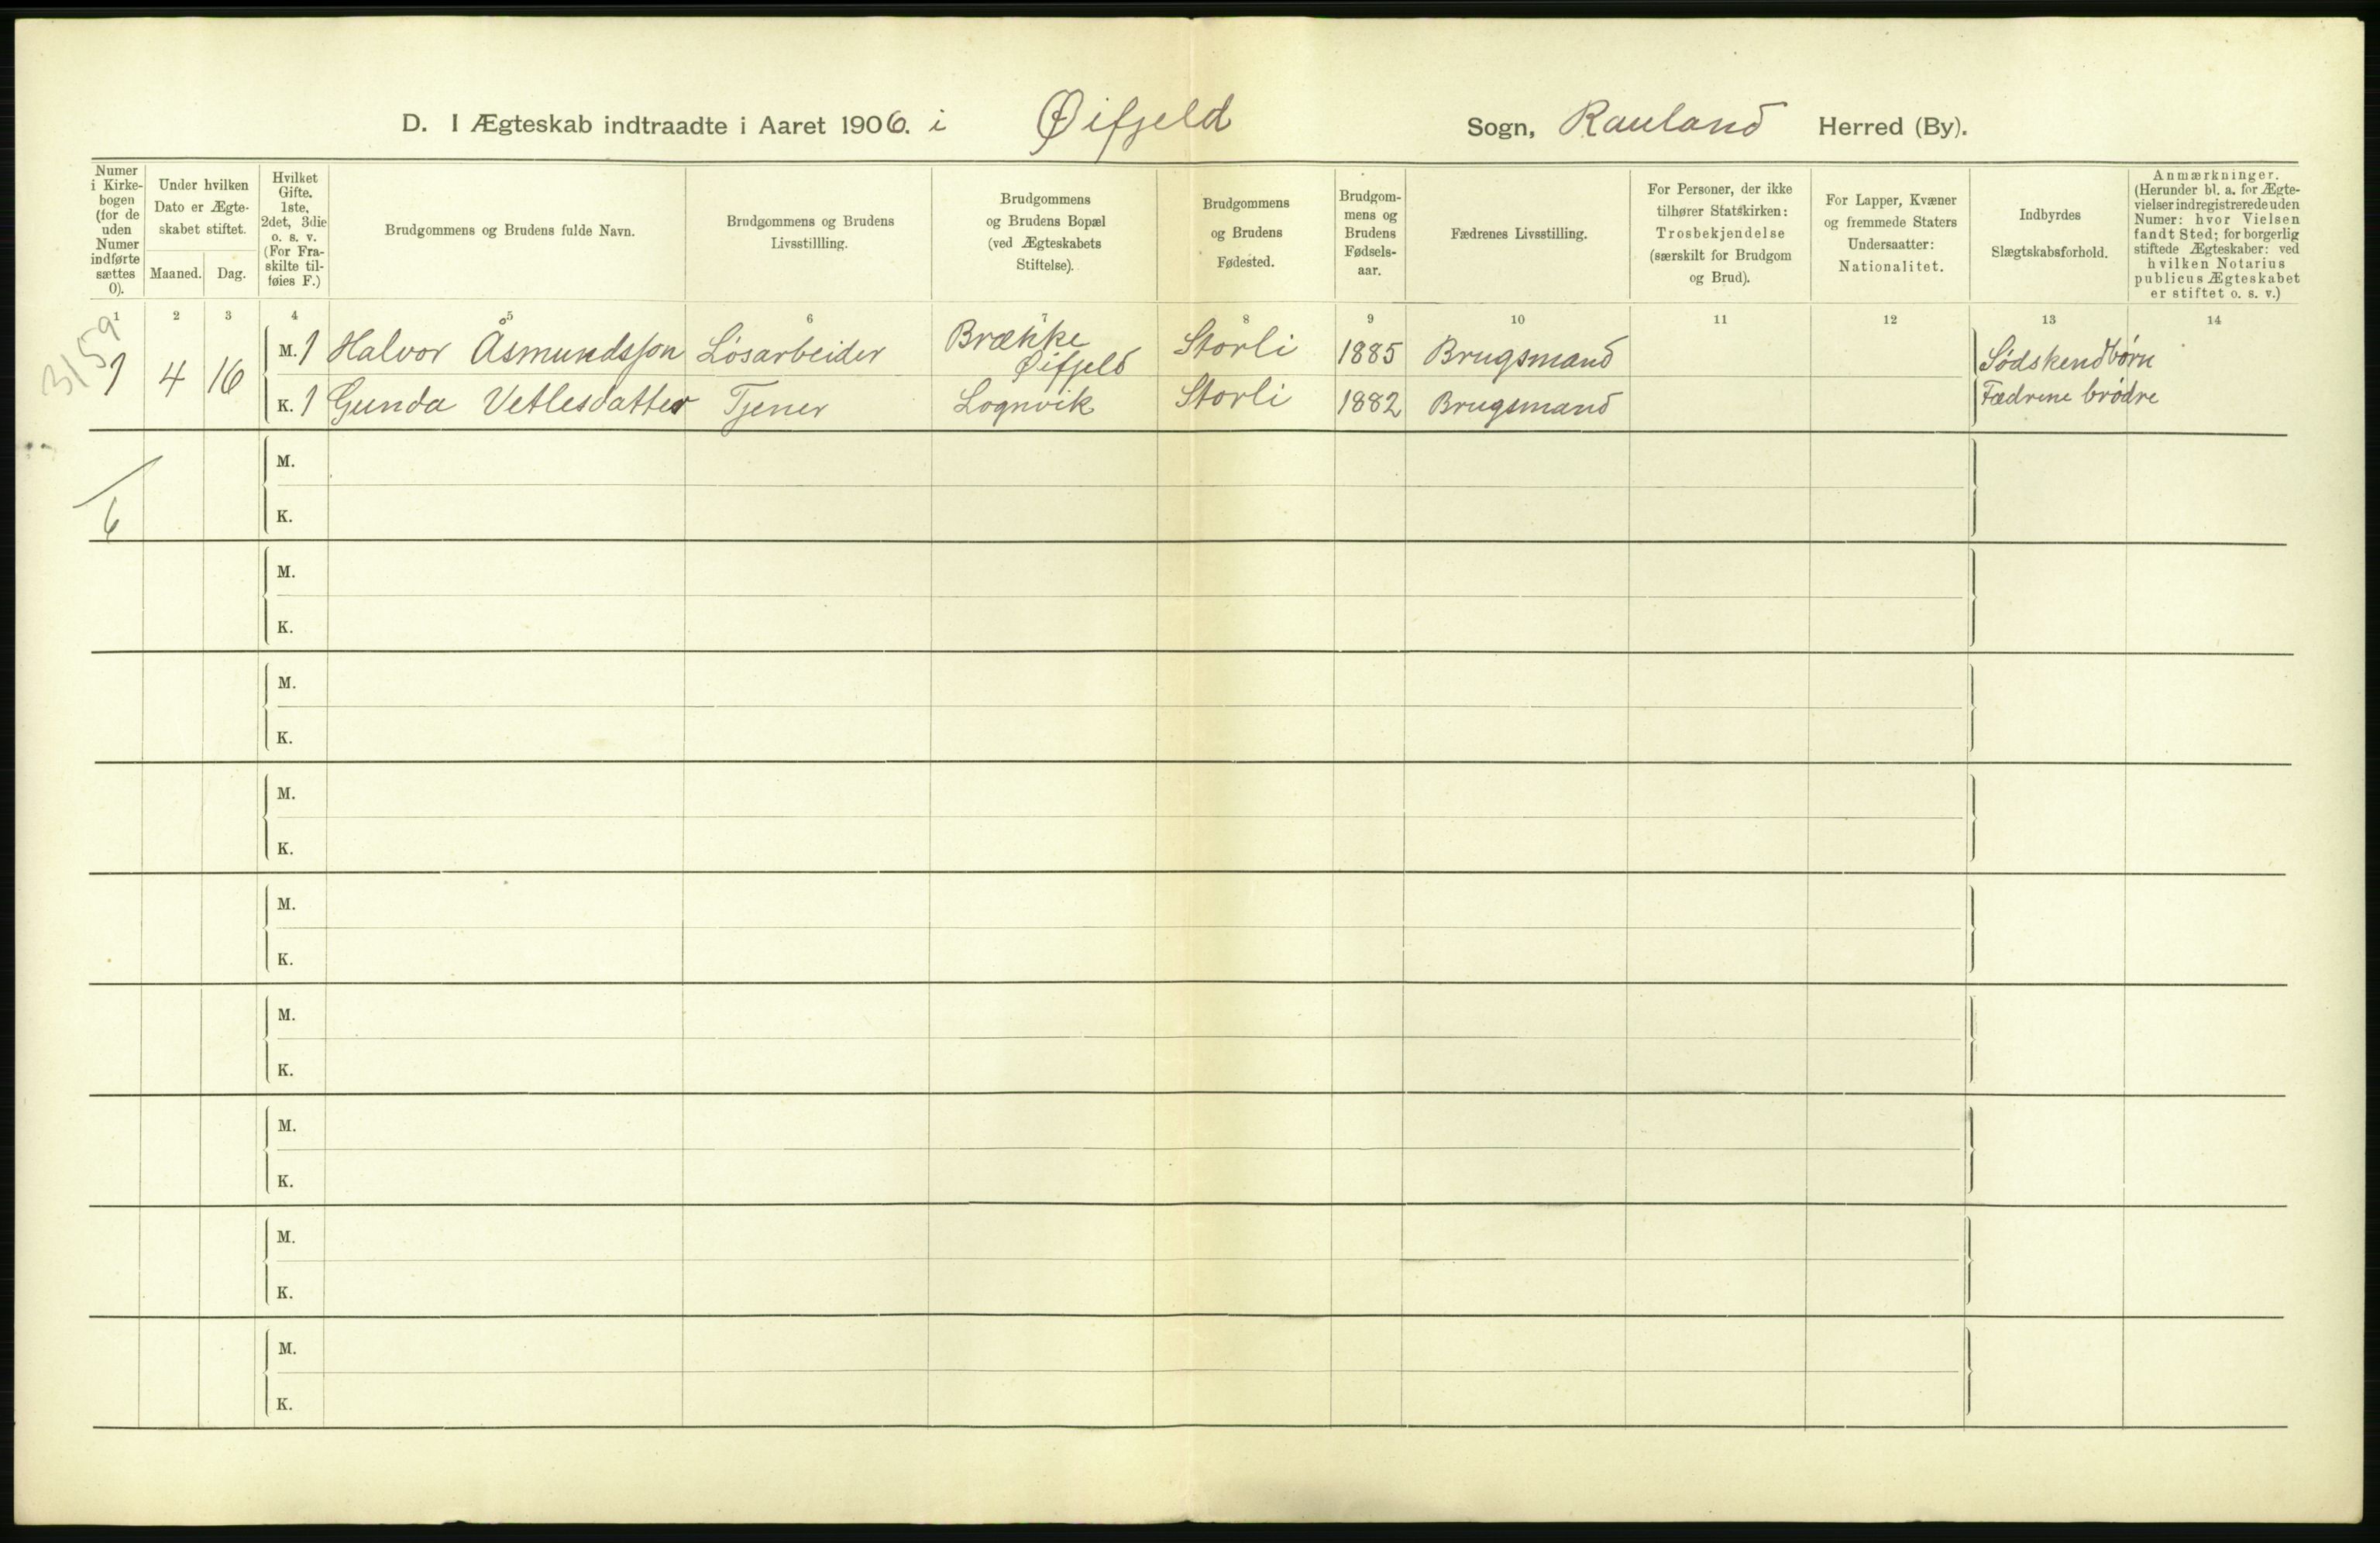 D. I Ægteskab indtraadte i Aaret 1906. i Øifjeld Sogn, Rauland Herred (By).
Numer
i Kirke-
bogen
(for de
uden
Numer
indførte
sættes
0).
Under hvilken
Dato er Ægte-
skabet stiftet.
Maaned. Dag.
Hvilket
Gifte.
1ste,
2det, 3die
o. s. v.
(For Fra-
skilte til-
føies F.)
Brudgommens og Brudens fulde Navn.
Brudgommens og Brudens
Livsstillling.
Brudgommens
og Brudens Bopæl
(ved Ægteskabets
Stiftelse).
Brudgommens
og Brudens
Fødested.
Brudgom-
mens og
Brudens
Fødsels-
aar.
Fædrenes Livsstilling.
For Personer, der ikke
tilhører Statskirken:
Trosbekjendelse
(særskilt for Brudgom
og Brud).
For Lapper, Kvæner
og fremmede Staters
Undersaatter:
Nationalitet.
Indbyrdes
Slægtskabsforhold.
Anmærkninger.
(Herunder bl. a. for Ægte-
vielser indregistrerede uden
Numer: hvor Vielsen
fandt Sted; for borgerlig
stiftede Ægteskaber: ved
hvilken Notarius
publicus Ægteskabet
er stiftet o. s. v.)
1 2 3 4 5 6 7 8 9 10 11 12 13 14
3159
1 4 16
M. 1 Halvor Åsmundsson Løsarbeider Brække Øifjeld Storli 1885 Brugsmand Sødskendbørn
K. 1 Gunda Vetlesdatter Tjener Lognvik Storli 1882 Brugsmand Fædrene brødre
M.
6
K.
M.
K.
M.
K.
M.
K.
M.
K.
M.
K.
M.
K.
M.
K.
M.
K.